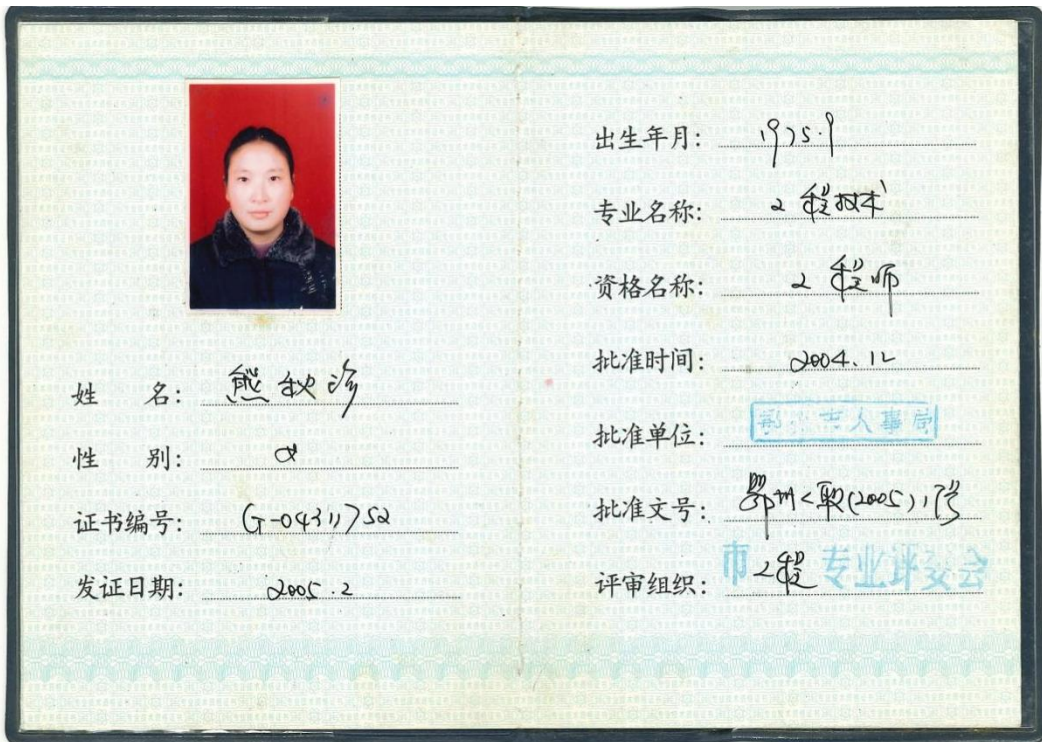 姓 名: 熊秋珍
性 别: 女
证书编号: G-04311752
发证日期: 2005.2
出生年月: 1975.9
专业名称: 工程技术
资格名称: 工程师
批准时间: 2004.12
批准单位: 鄂州市人事局
批准文号: 鄂州 职(2005) 号
评审组织: 市工程专业评委会